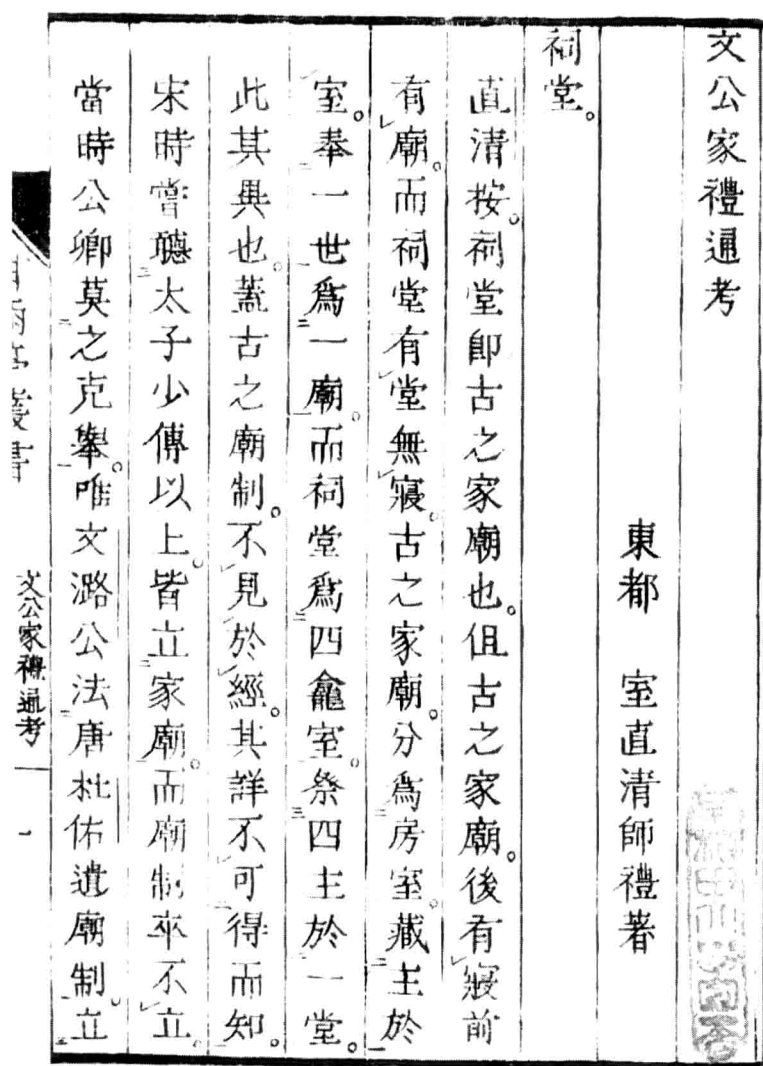 文公家禮通考
東都　室直清師禮著
祠堂。
直清按。祠堂卽古之家廟也。但古之家廟。後有寢前
有廟。而祠堂有堂無寢。古之家廟。分爲房室。藏主於
室。奉一世爲一廟。而祠堂爲四龕室。祭四主於一堂。
此其異也。蓋古之廟制。不見於經。其詳不可得而知。
宋時嘗聽太子少傅以上。皆立家廟。而廟制卒不立。
當時公卿莫之克擧。唯文潞公法唐杜佑遺廟制。立
叢書
文公家禮通考
一